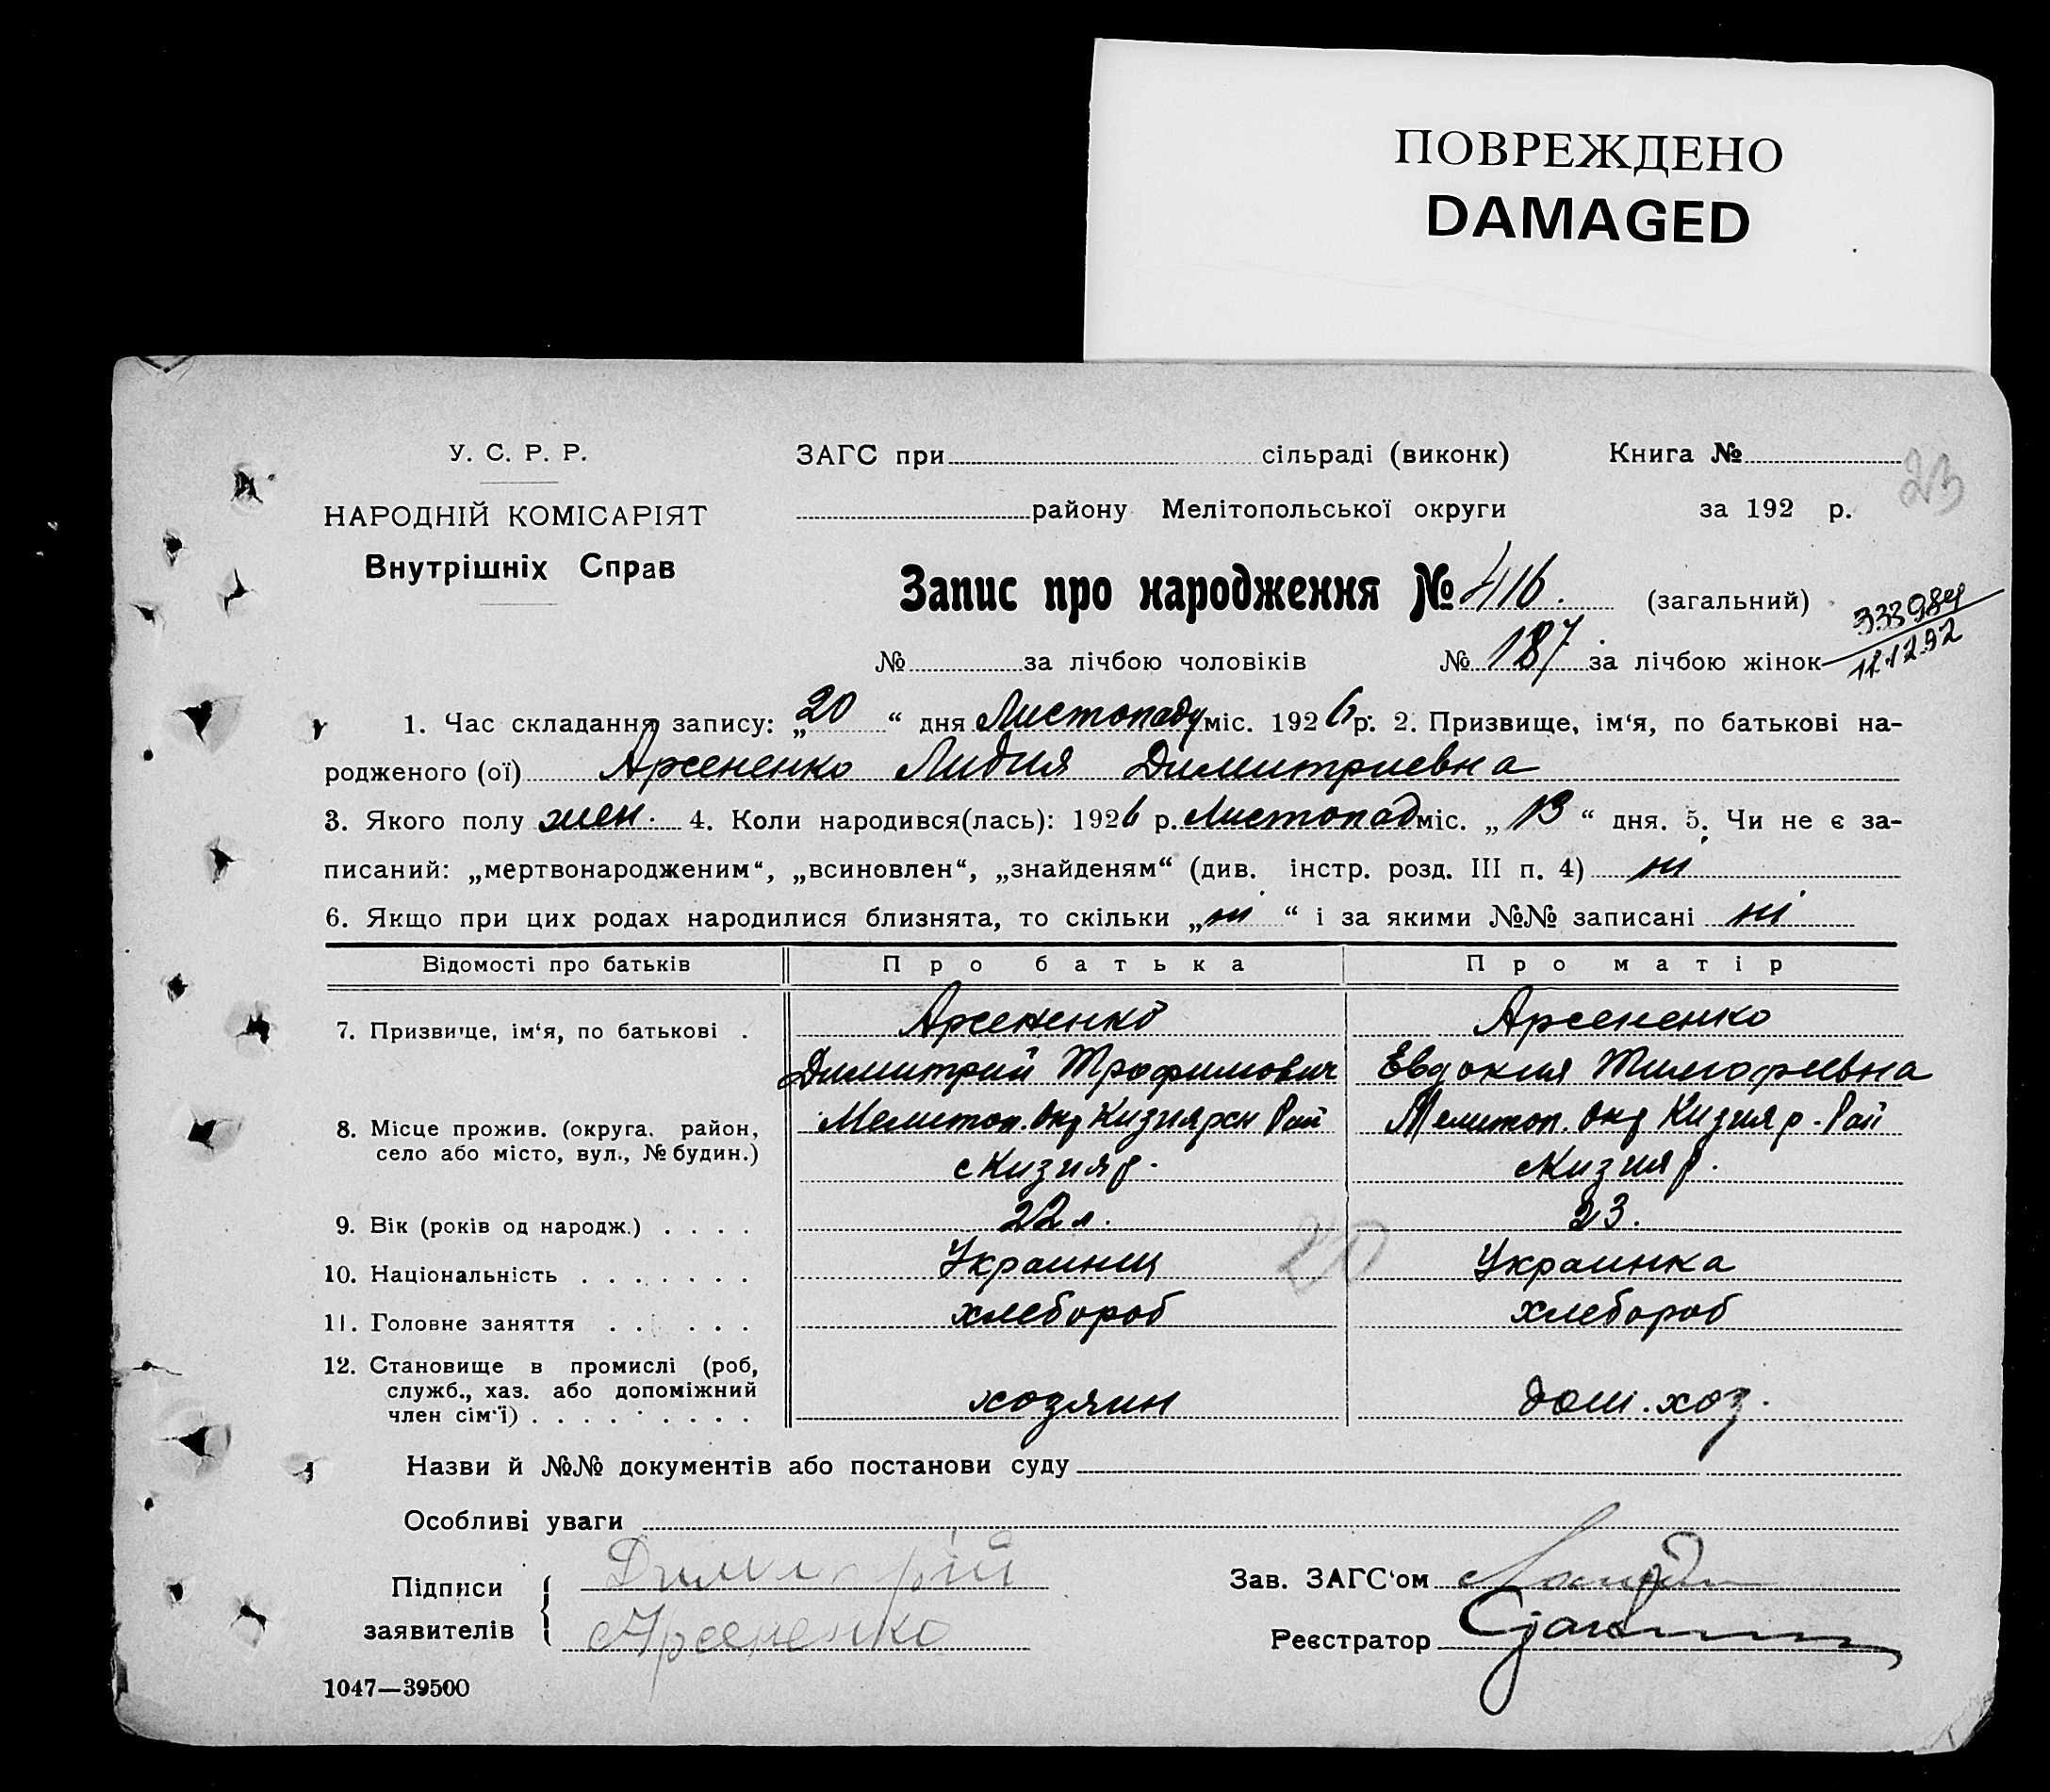 ПОВРЕЖДЕНО
DAMAGED
У. С. Р. Р.
НАРОДНІЙ КОМІСАРІЯТ
Внутрішніх Справ
ЗАГС при сільраді (виконк) Книга №
23
району Мелітопольської округи за 192 р.
Запис про народження № 416. (загальний)
№ за лічбою чоловіків № 187 за лічбою жінок
11.12.92
1. Час складання запису: „20“ дня Листопаду міс. 1926 р. 2. Призвище, ім‘я, по батькові на-
родженого (ої) Арсененко Лидия Димитриевна
3. Якого полу жен. 4. Коли народився(лась): 1926 р. Листопад міс. „13“ дня. 5. Чи не є за-
писаний: „мертвонародженим“, „всиновлен“, „знайденям“ (див. інстр. розд. III п. 4) ні
6. Якщо при цих родах народилися близнята, то скільки „ні“ і за якими №№ записані ні
Відомості про батьків Про батька Про матір
7. Призвище, ім‘я, по батькові . Арсененко Арсененко
Димитрий Трофимович Евдокия Тимофеевна
8. Місце прожив. (округа, район, Мелитоп. Окр Кизиярск Рай Мелитоп. Окр Кизияр. Рай
село або місто, вул., № будин.) с Кизияр. с Кизияр.
9. Вік (років од народж.) . . . . 22 л. 23.
10. Національність . . . . . . . Украинец Украинка
11. Головне заняття . . . . . . хлебороб хлебороб
12. Становище в промислі (роб,
служб., хаз. або допоміжний
член сім‘ї) . . . . . . . . . хозяин дом. хоз.
20
Назви й №№ документів або постанови суду
Особливі уваги
Підписи
заявителів
Димитрій
Арсененко
Зав. ЗАГС‘ом
Реєстратор
1047—39500